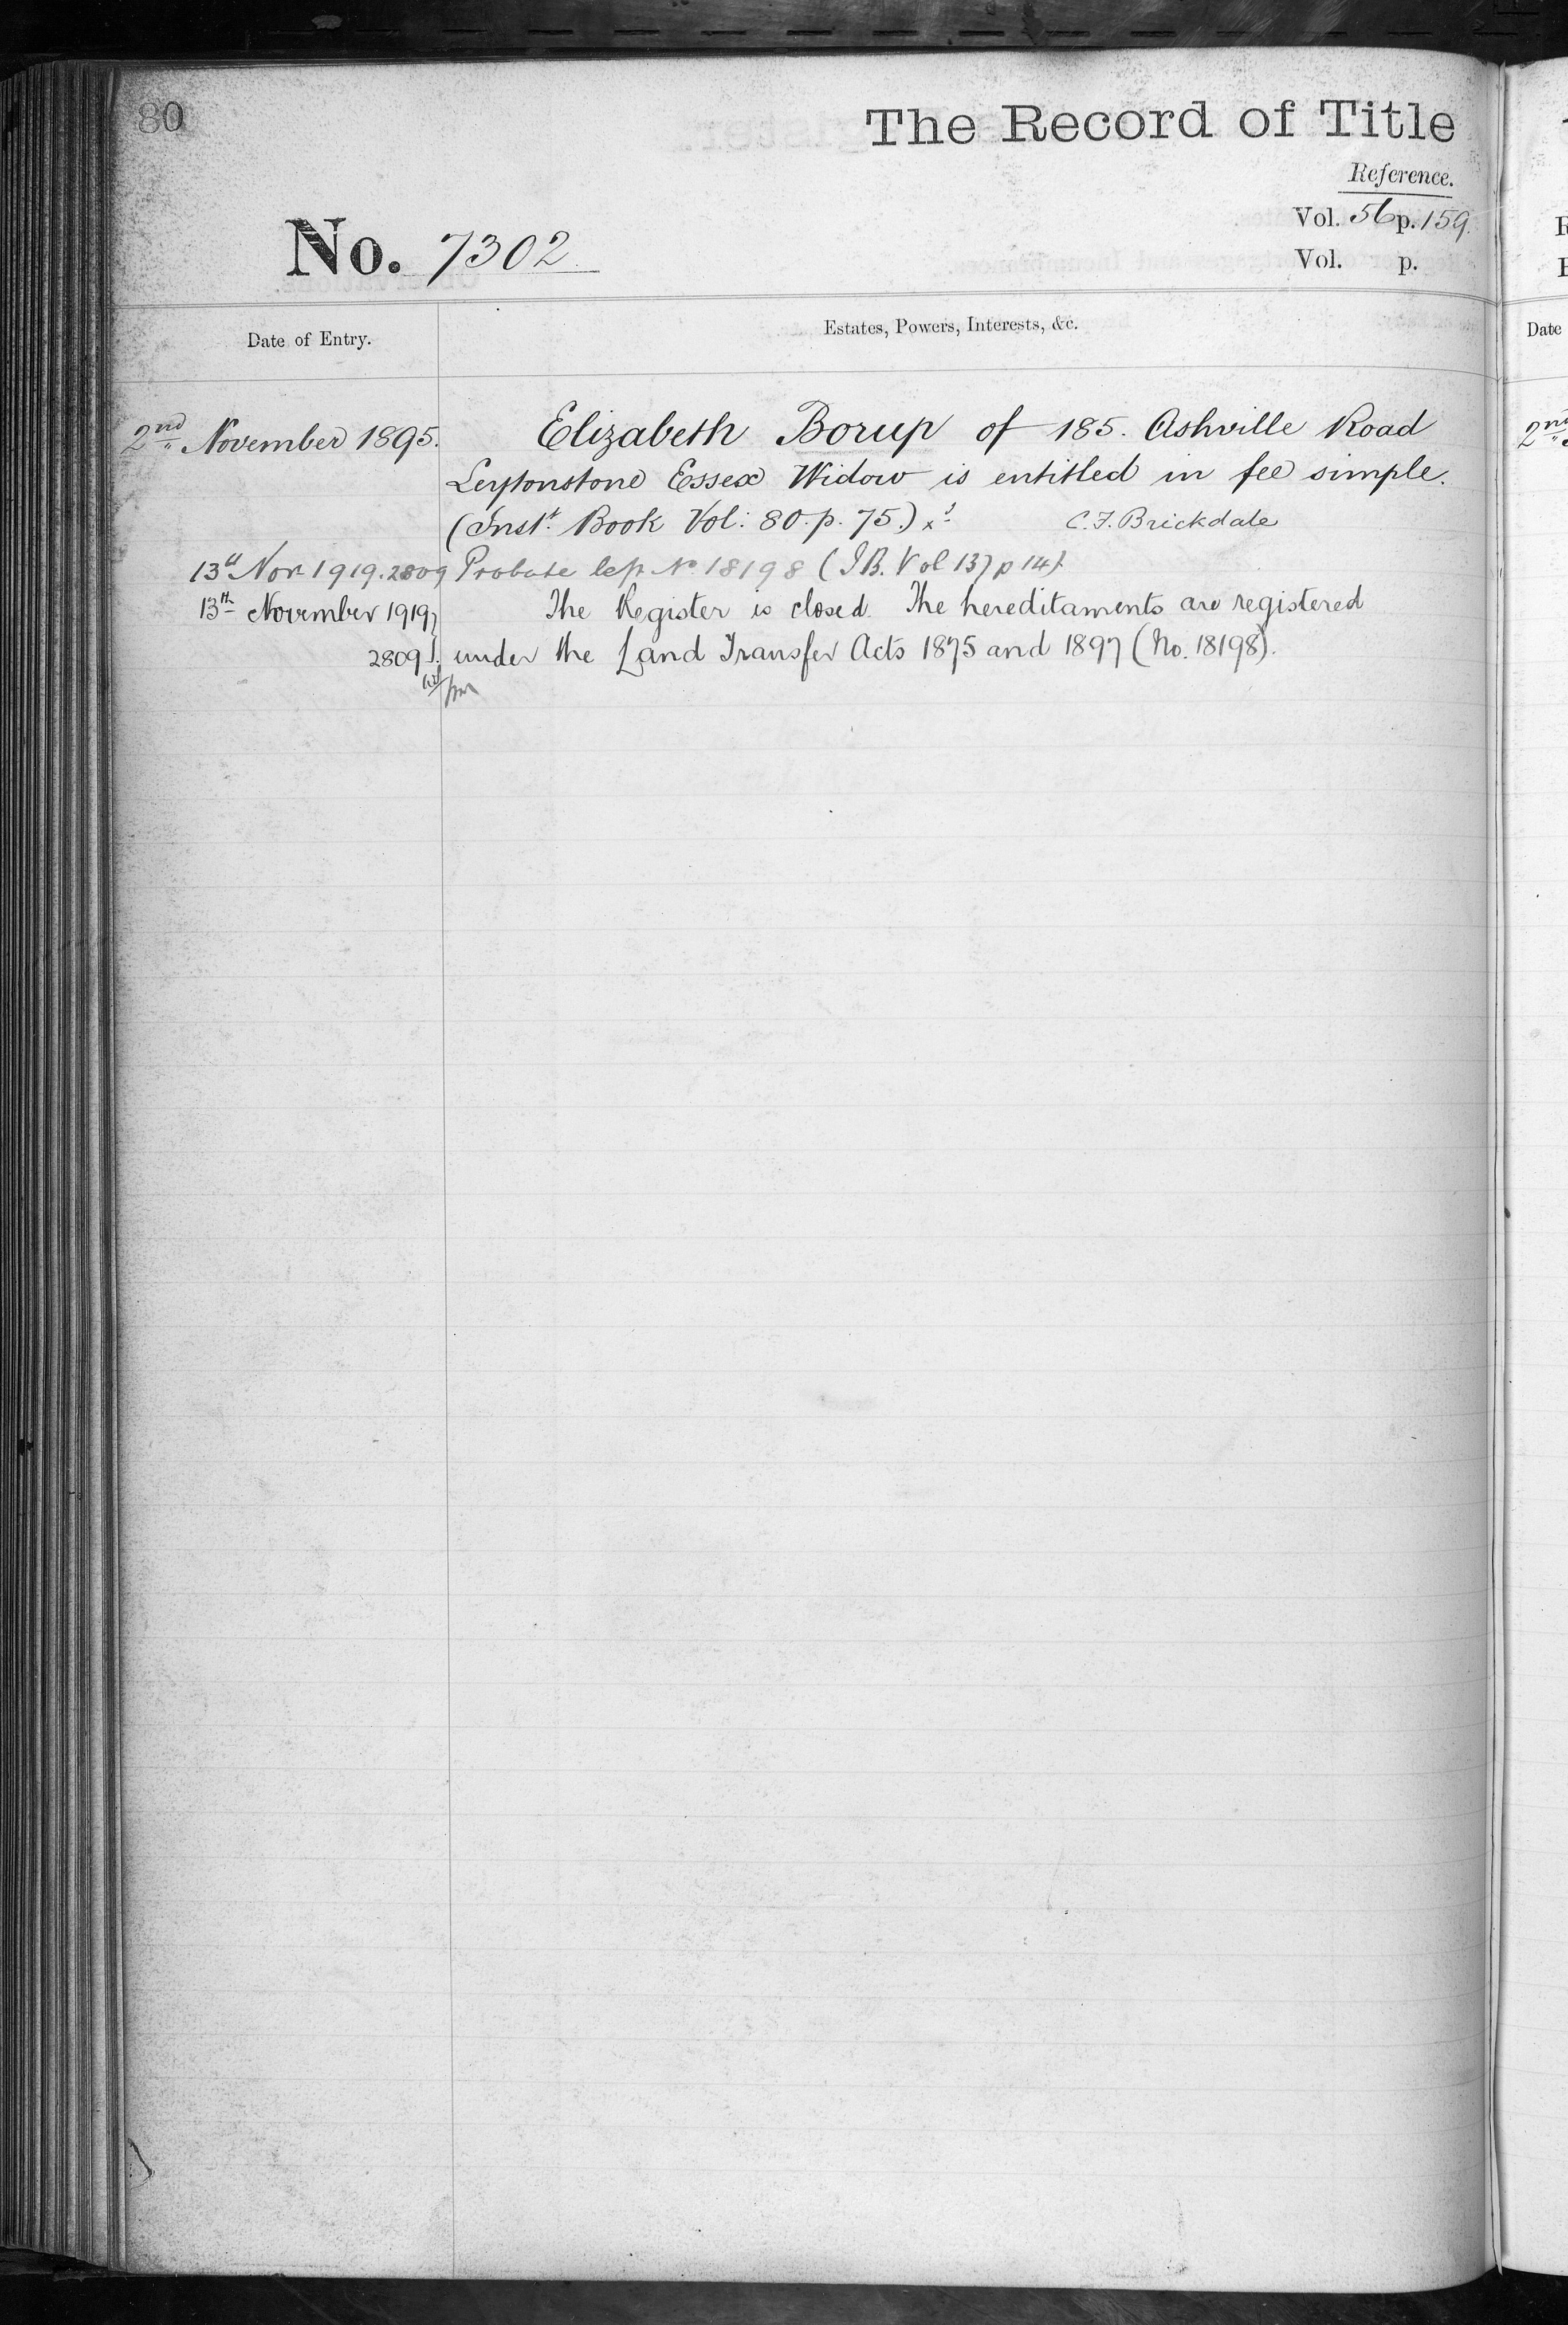 80
The Record of Title
Reference.
Vol. 56 p. 159.
No. 7302.
Vol. p.
Date of Entry.
Estates, Powers, Interests, &c.
Date
2nd November 1895.
Elizabeth Borup of 185. Ashville Road
2nd
Leytonstone Essex Widow is entitled in fee simple.
(Inst. Book Vol: 80. p. 75.) C.F. Brickdale
13th Nov 1919. 2809 Probate No 18198 (I.B. Vol 137 p 14).
13th November 1919
The Register is closed. The hereditaments are registered
2809
under the Land Transfer Acts 1875 and 1897 (No. 18198).